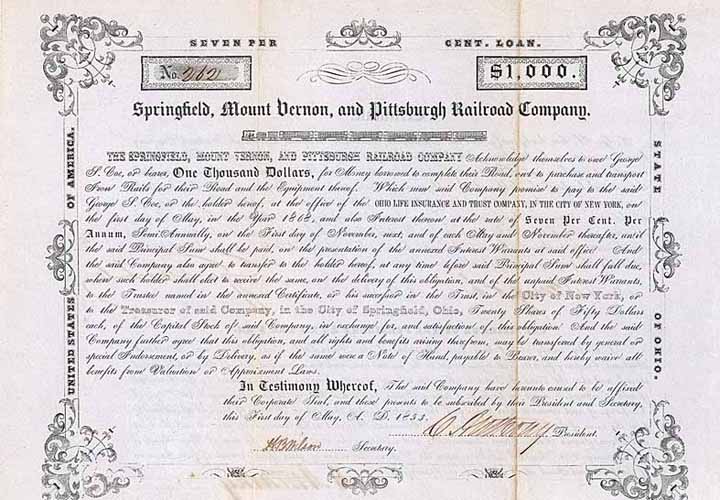 SEVEN PER CENT. LOAN.
No. 262
$1,000.
Springfield, Mount Vernon, and Pittsburgh Railroad Company.
THE SPRINGFIELD, MOUNT VERNON, AND PITTSBURGH RAILROAD COMPANY Acknowledge themselves to owe George
S. Coe, or bearer, One Thousand Dollars, for Money borrowed to complete their Road, and to purchase and transport
Iron Rails for their Road and the Equipment thereof. Which sum said Company promise to pay to the said
George S. Coe, or the holder hereof, at the office of the OHIO LIFE INSURANCE AND TRUST COMPANY, IN THE CITY OF NEW YORK, on
the first day of May, in the Year 1868, and also Interest thereon at the rate of Seven Per Cent. Per
Annum, Semi-Annually, on the First day of November, next, and of each May and November thereafter, until
the said Principal Sum shall be paid, on the presentation of the annexed Interest Warrants at said office. And
the said Company also agree to transfer to the holder hereof, at any time before said Principal Sum shall fall due,
when such holder shall elect to receive the same, on the delivery of this obligation, and of the unpaid Interest Warrants,
to the Trustee named in the annexed Certificate, or his successor in the Trust, in the City of New York, or
to the Treasurer of said Company, in the City of Springfield, Ohio, Twenty Shares of Fifty Dollars
each, of the Capital Stock of said Company, in exchange for, and satisfaction of, this obligation. And the said
Company further agree that this obligation, and all rights and benefits arising therefrom, may be transferred by general or
special Indorsement, or by Delivery, as if the same were a Note of Hand, payable to Bearer, and hereby waive all
benefits from Valuation or Appraisment Laws.
In Testimony Whereof, The said Company have hereunto caused to be affixed
their Corporate Seal, and these presents to be subscribed by their President and Secretary,
this First day of May, A. D. 1853.
President.
H B Wilson Secretary.
UNITED STATES OF AMERICA.
STATE OF OHIO.